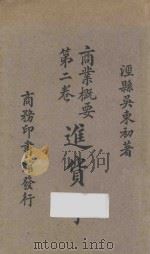 涇縣吳東初著
商業概要
第二卷
進貨
商務印書館發行
www.mtoou.info